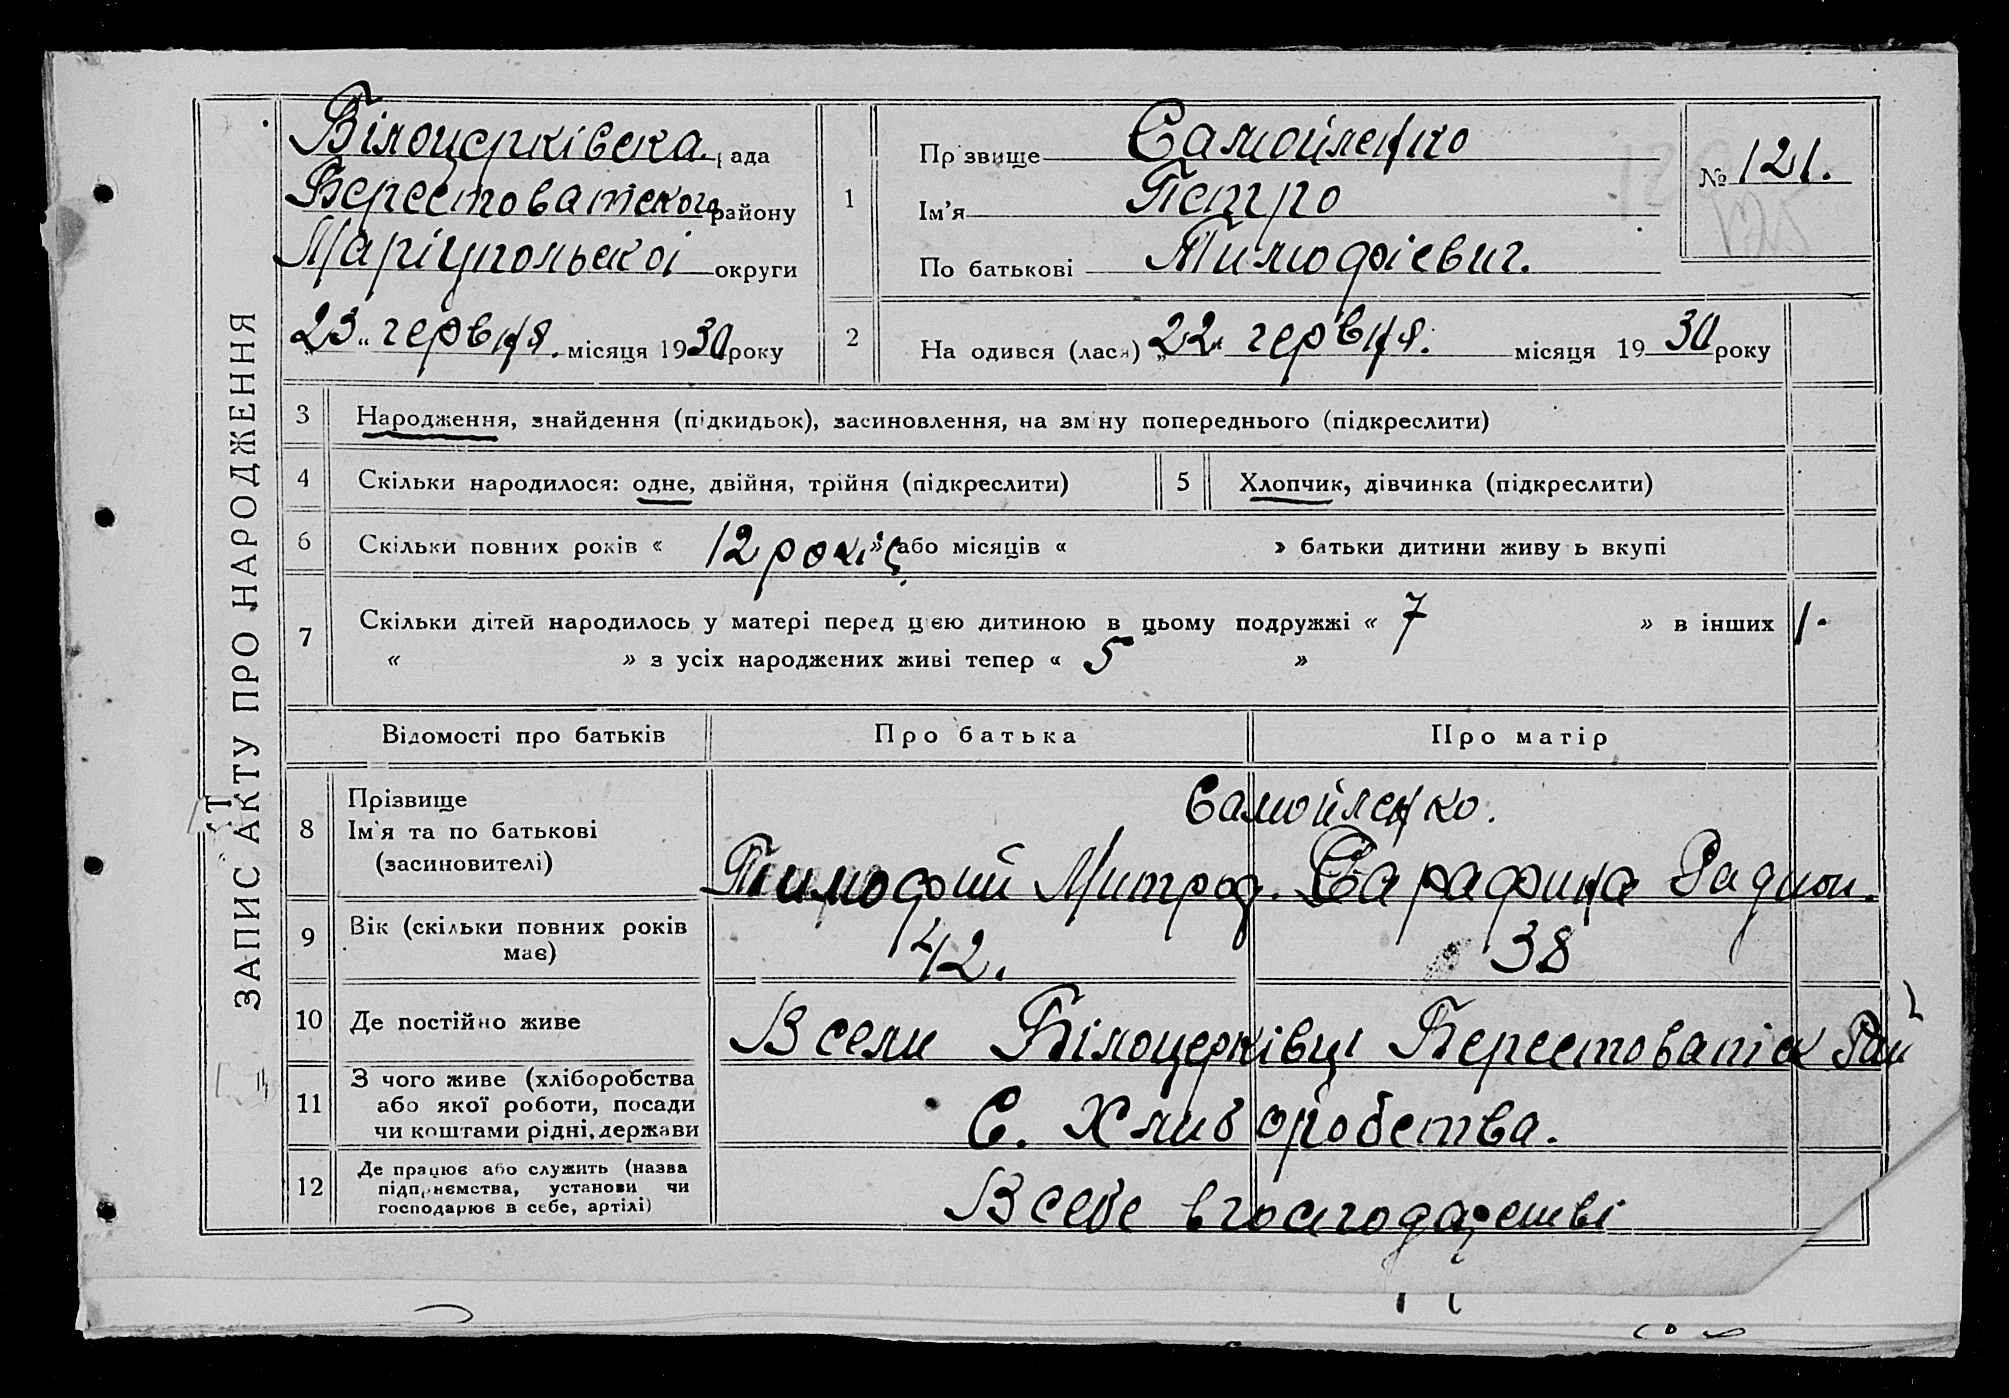 ЗАПИС АКТУ ПРО НАРОДЖЕННЯ
Білоцерківска рада
Берестоватского району
Маріупольскоі округи
23 червня місяця 1930 року
1
Прізвище Самойленко
Ім'я Петро
По батькові Тимофієвич.
№ 121.
2
На одився (лася) „22“ червня. місяця 1930 року
3 Народження, знайдення (підкидьок), засиновлення, на зміну попереднього (підкреслити)
4 Скільки народилося: одне, двійня, трійня (підкреслити) 5 Хлопчик, дівчинка (підкреслити)
6 Скільки повних років « 12 років » або місяців « » батьки дитини живуть вкупі
7 Скільки дітей народилось у матері перед цією дитиною в цьому подружжі « 7 » в інших 1.
« » з усіх народжених живі тепер « 5 »
Відомості про батьків Про батька Про матір
8 Прізвище
Ім'я та по батькові
(засиновителі)
Самойленко.
Тимофий Митроф. Сарафина Радион.
9 Вік (скільки повних років
має)
42. 38
10 Де постійно живе В сели Білоцерківці Берестоватіск Рай
11 З чого живе (хліборобства
або якої роботи, посади
чи коштами рідні, держави
С. Хлиборобства.
12 Де працює або служить (назва
підприємства, установи чи
господарює в себе, артілі)
В себе в господарстві